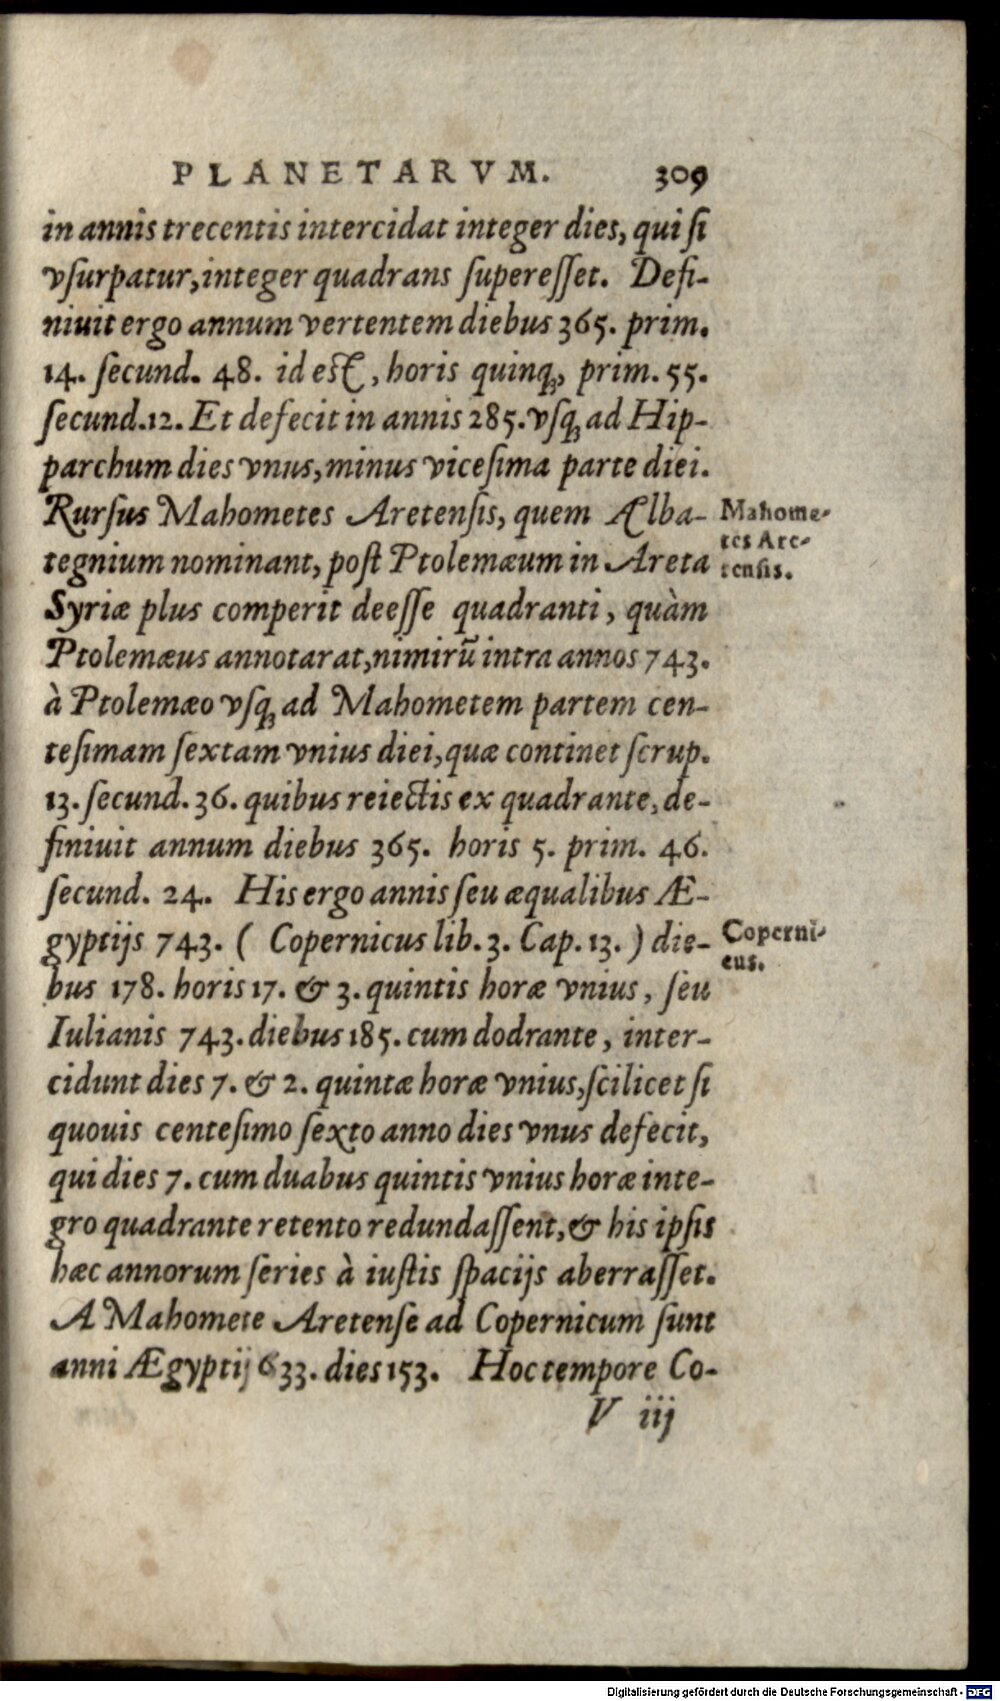 PLANETARVM. 309
in annis trecentis intercidat integer dies, qui ſi
vſurpatur, integer quadrans ſupereſſet. Defi-
niuit ergo annum vertentem diebus 365. prim.
14. ſecund. 48. id eſt, horis quinq́;, prim. 55.
ſecund. 12. Et defecit in annis 285. vſq; ad Hip-
parchum dies vnus, minus viceſima parte diei.
Rurſus Mahometes Aretenſis, quem Ælba-
tegnium nominant, poſt Ptolemæum in Areta
Syriæ plus comperit deeſſe quadranti, quàm
Ptolemæus annotarat, nimirũ intra annos 743.
à Ptolemæo vſq; ad Mahometem partem cen-
teſimam ſextam vnius diei, quæ continet ſcrup.
13. ſecund. 36. quibus reiectis ex quadrante, de-
finiuit annum diebus 365. horis 5. prim. 46.
ſecund. 24. His ergo annis ſeu æqualibus Æ-
gyptijs 743. ( Copernicus lib. 3. Cap. 13. ) die-
bus 178. horis 17. & 3. quintis horæ vnius, ſeu
Iulianis 743. diebus 185. cum dodrante, inter-
cidunt dies 7. & 2. quintæ horæ vnius, ſcilicet ſi
quouis centeſimo ſexto anno dies vnus defecit,
qui dies 7. cum duabus quintis vnius horæ inte-
gro quadrante retento redundaſſent, & his ipſis
hæc annorum ſeries à iuſtis ſpacijs aberraſſet.
A Mahomete Aretenſe ad Copernicum ſunt
anni Ægyptij 633. dies 153. Hoc tempore Co-
V iij
Mahome-
tes Are-
tenſis.
Coperni-
cus.
Digitalisierung gefördert durch die Deutsche Forschungsgemeinschaft - DFG